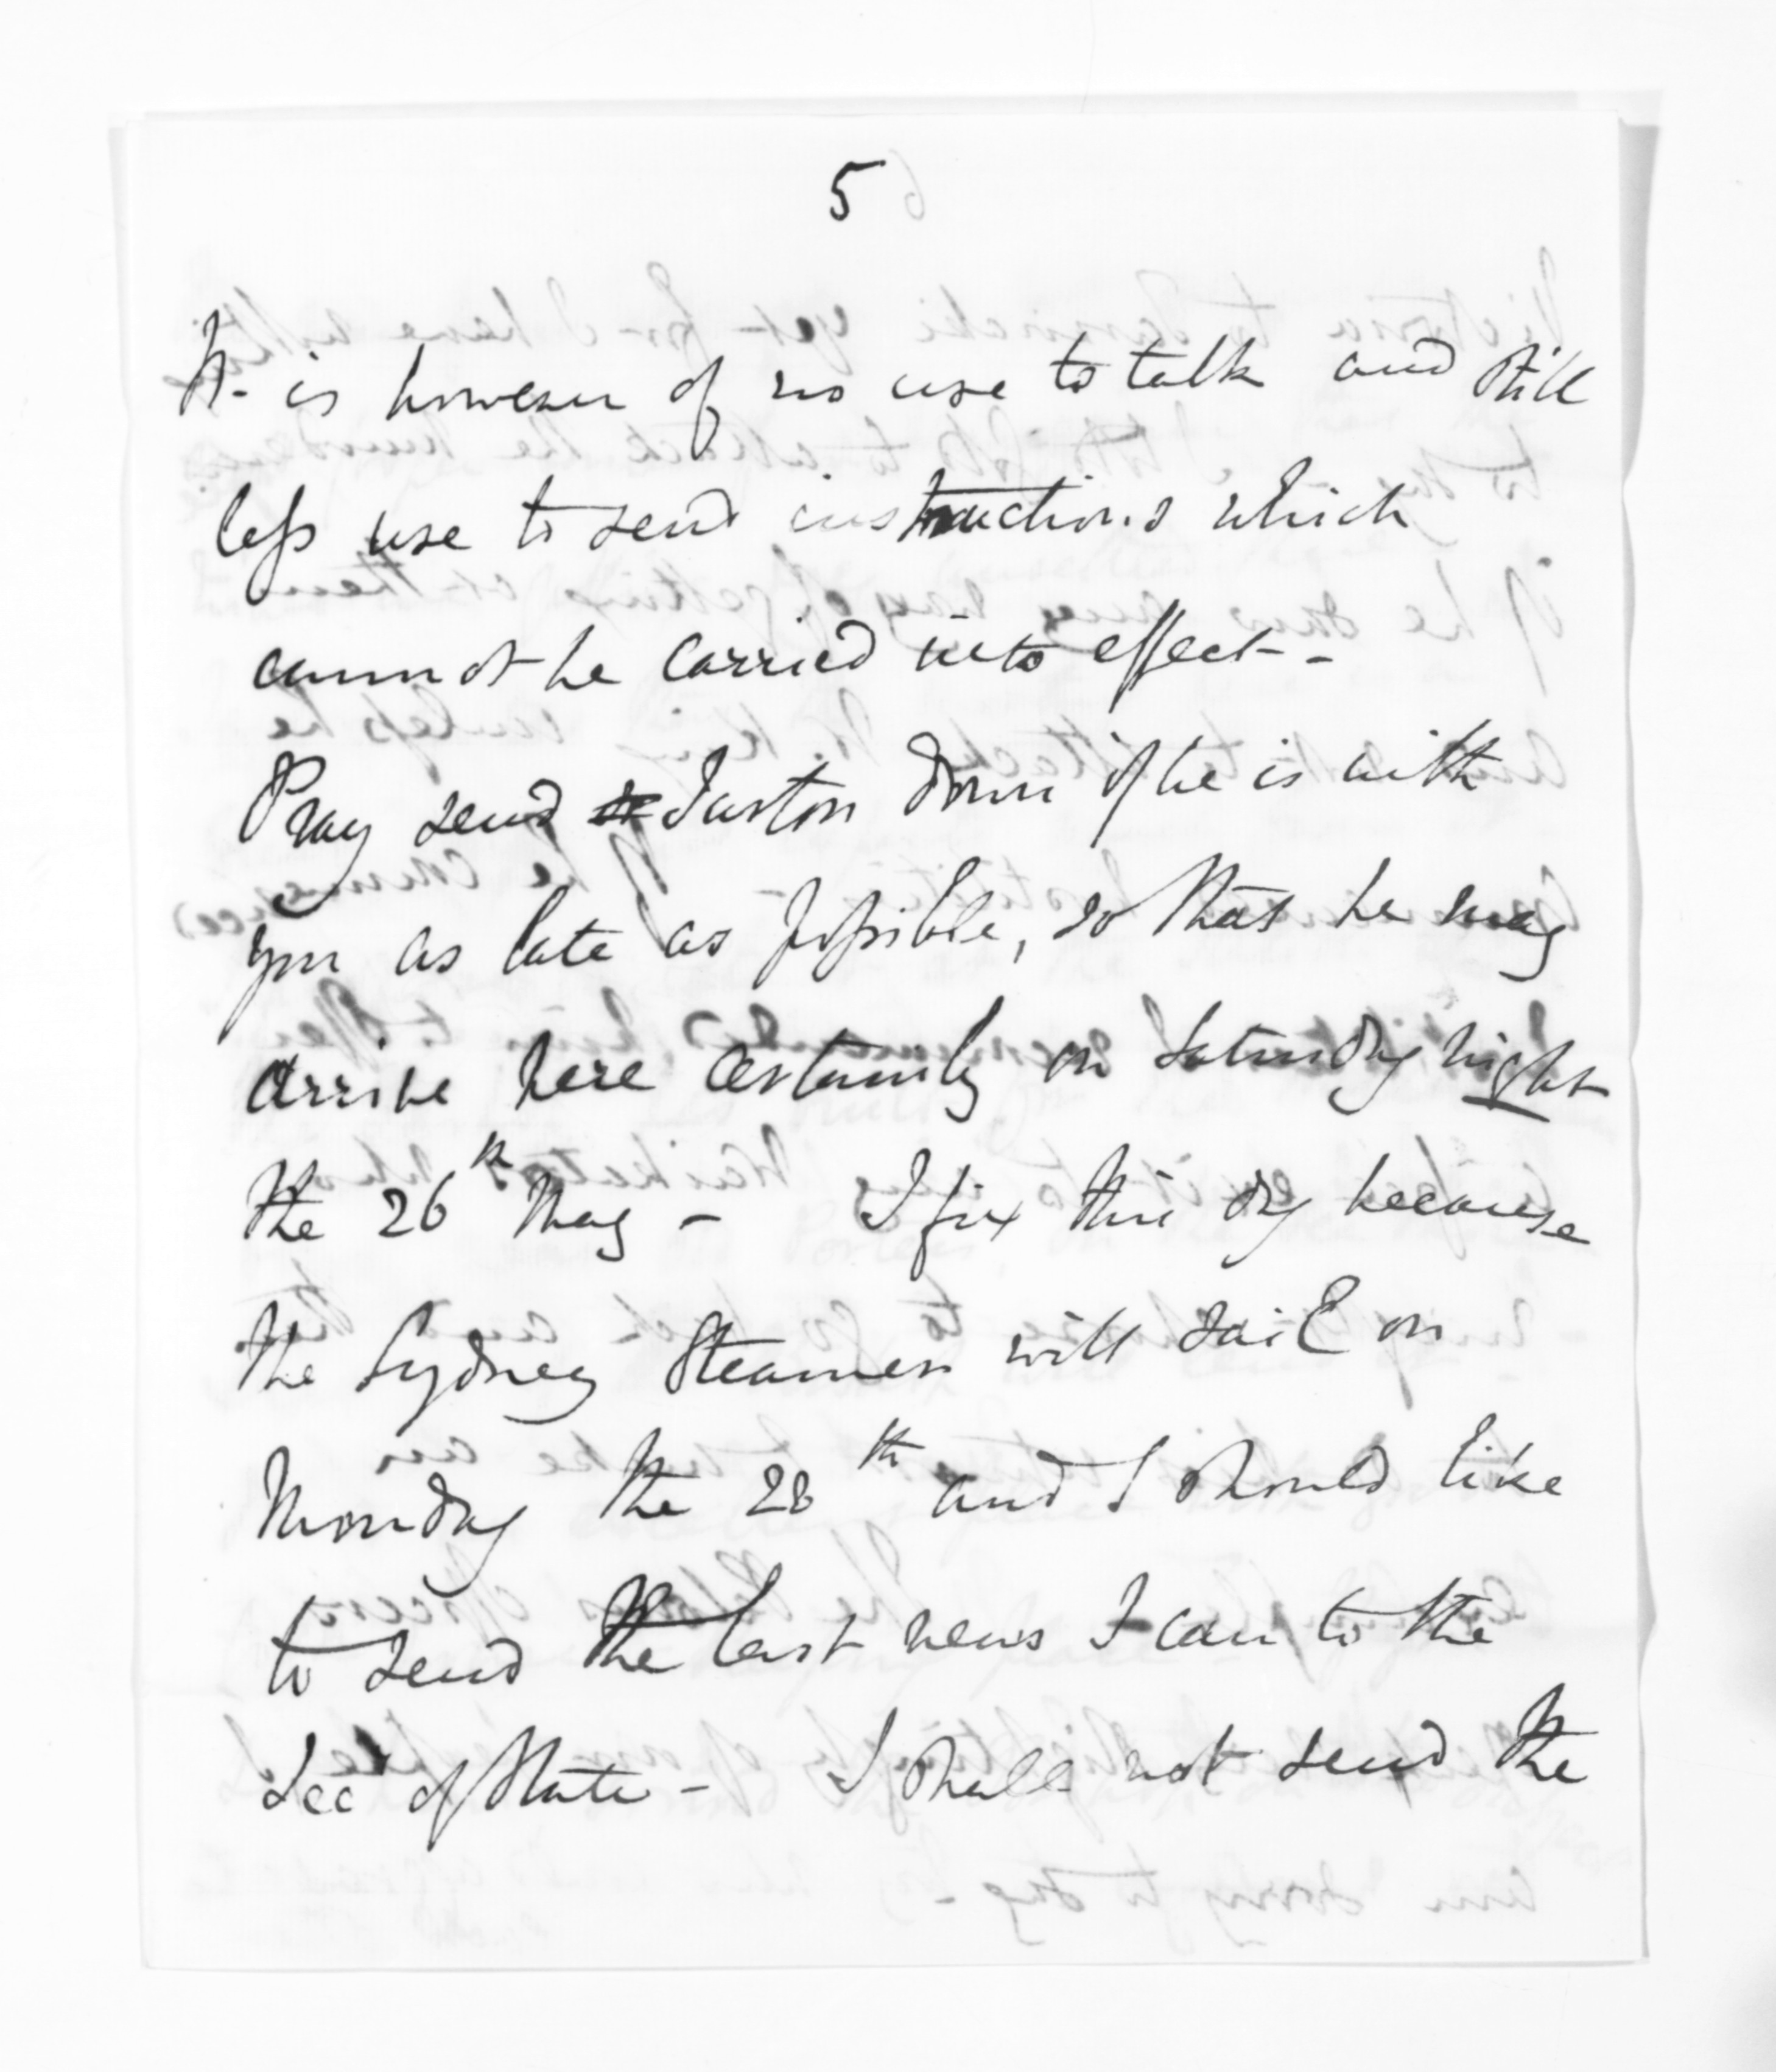 5
It is however of no use to talk and still
less use to send instructions which
cannot be carried into effect -
Pray send Turton down if he is with
you as late as possible, so that he may
arrive here certainly on Saturday night
the 26th May - I fix this day because
the Sydney Steamer will sail on
Monday the 28th and I should like
to send the last news I can to the
Sec of State - I shall not send the